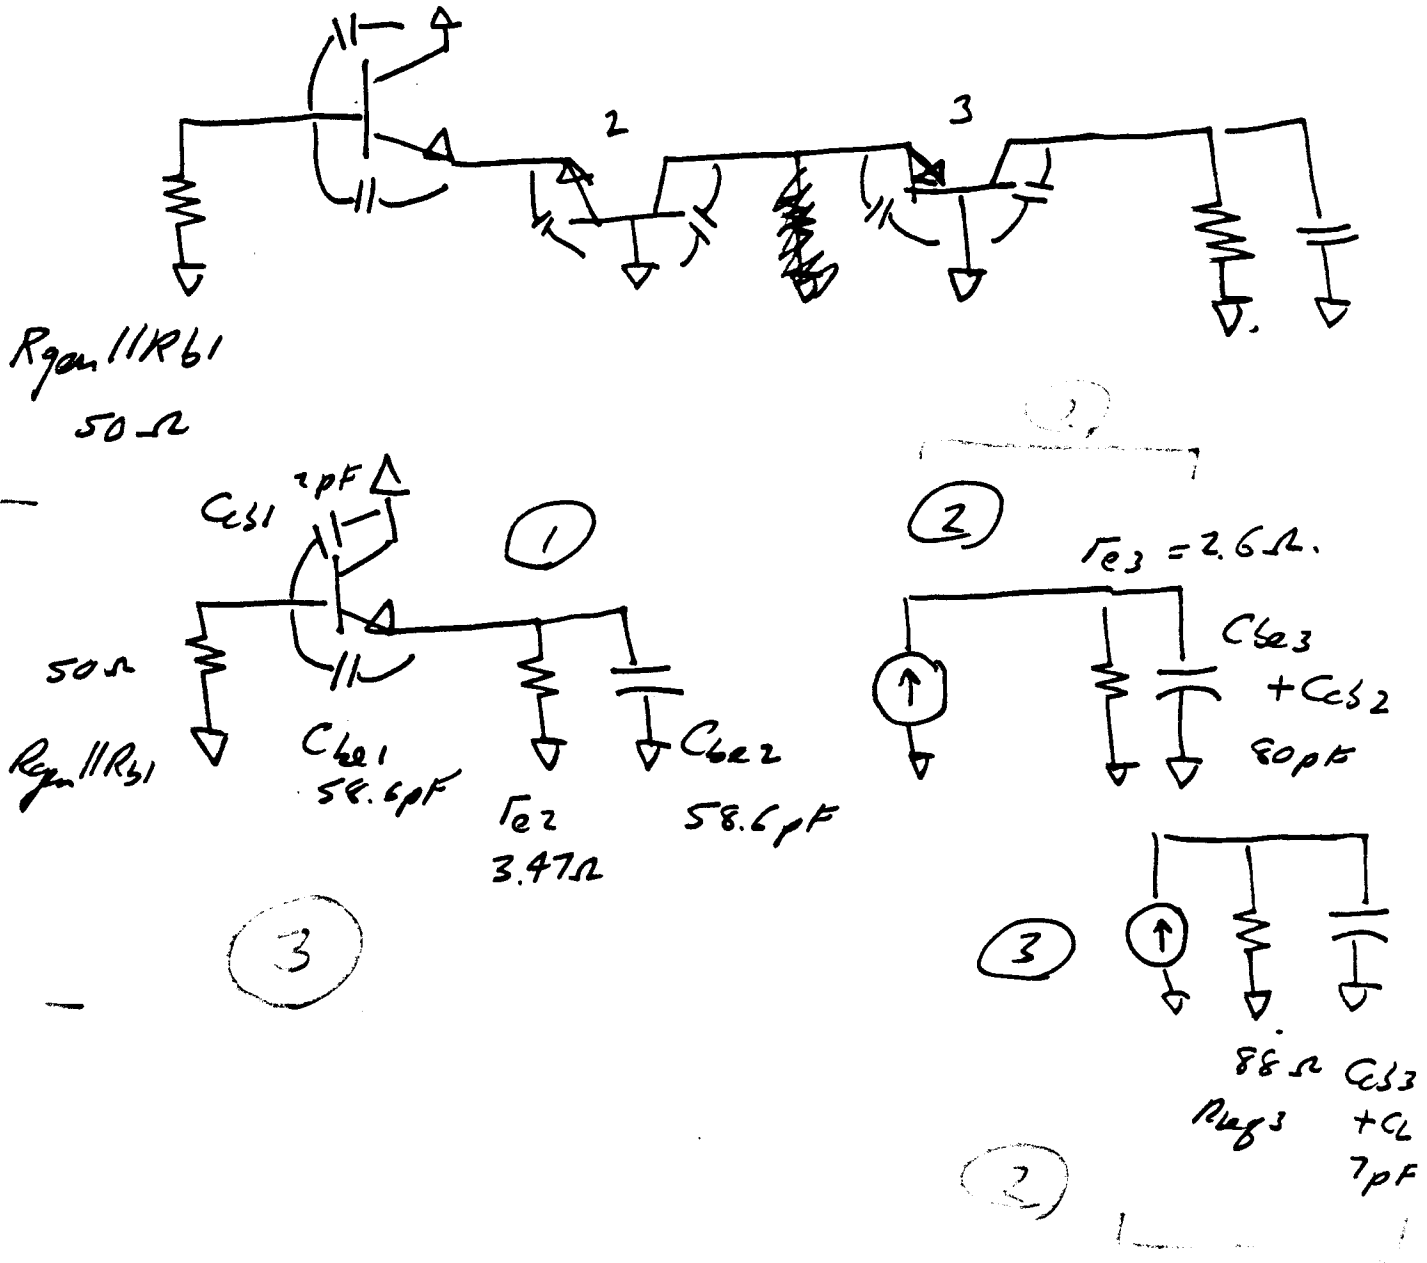 2
3
Rgen//Rb1
50Ω
2
Ccb1 2pF
1
2
re3 = 2.6Ω.
50Ω
Rgen//Rb1
Cbe1
58.6pF
re2
3.47Ω
Cbe2
58.6pF
Cbe3
+Ccb2
80pF
3
3
88Ω
Rleq3
Ccb3
+CL
7pF
2